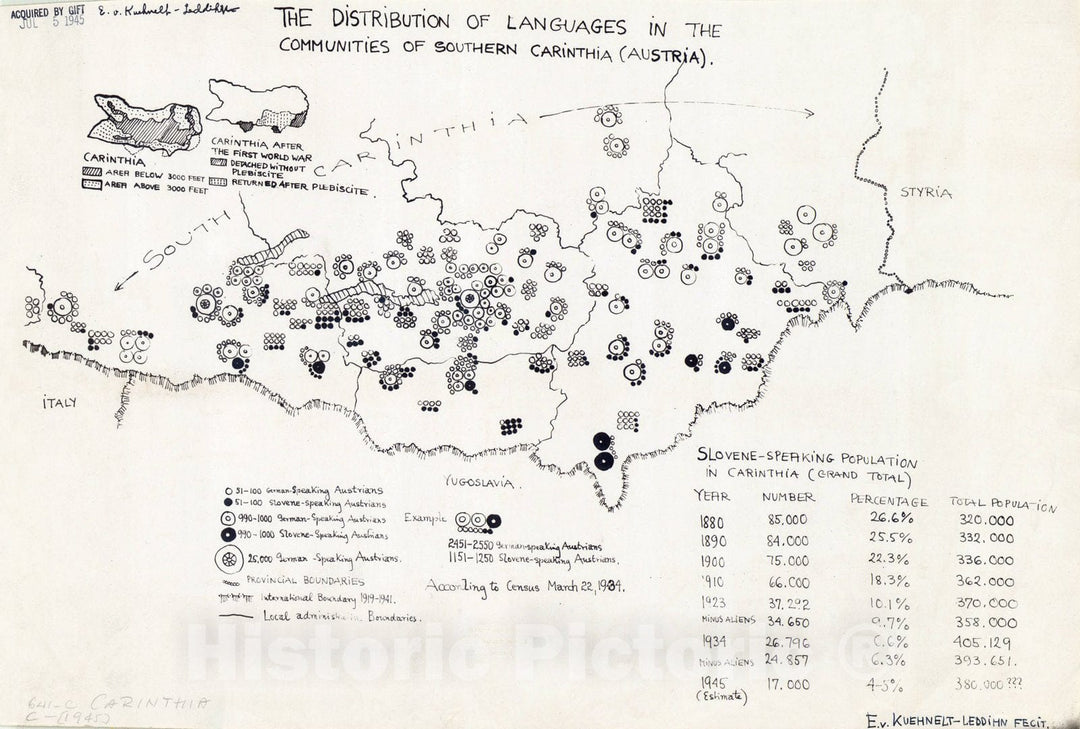 ACQUIRED BY GIFT
JUL 5 1945
E. v. Kuehnelt-Leddihn
THE DISTRIBUTION OF LANGUAGES IN THE
COMMUNITIES OF SOUTHERN CARINTHIA (AUSTRIA).
CARINTHIA
AREA BELOW 3000 FEET
AREA ABOVE 3000 FEET
CARINTHIA AFTER
THE FIRST WORLD WAR
DETACHED WITHOUT
PLEBISCITE
RETURNED AFTER PLEBISCITE.
SOUTH CARINTHIA
STYRIA
ITALY
YUGOSLAVIA.
51-100 German-Speaking Austrians
51-100 Slovene-speaking Austrians
990-1000 German-Speaking Austrians
990-1000 Slovene-Speaking Austrians
25,000 German-Speaking Austrians.
PROVINCIAL BOUNDARIES
International Boundary 1919-1941.
Local administ in. Boundaries.
Example
2451-2550 German-speaking Austrians
1151-1250 Slovene-speaking Austrians.
According to Census March 22, 1934.
SLOVENE-SPEAKING POPULATION
IN CARINTHIA (GRAND TOTAL)
YEAR NUMBER PERCENTAGE TOTAL POPULATION
1880 85.000 26.6% 320.000
1890 84.000 25.5% 332.000
1900 75.000 22.3% 336.000
1910 66.000 18.3% 362.000
1923 37.292 10.1% 370.000
MINUS ALIENS 34.650 9.7% 358.000
1934 26.796 6.6% 405.129
MINUS ALIENS 24.857 6.3% 393.651.
1945 17.000 4-5% 380.000???
(Estimate)
Historic Pictoric ®
641-C CARINTHIA
C-(1945)
E.v. KUEHNELT-LEDDIHN FECIT.